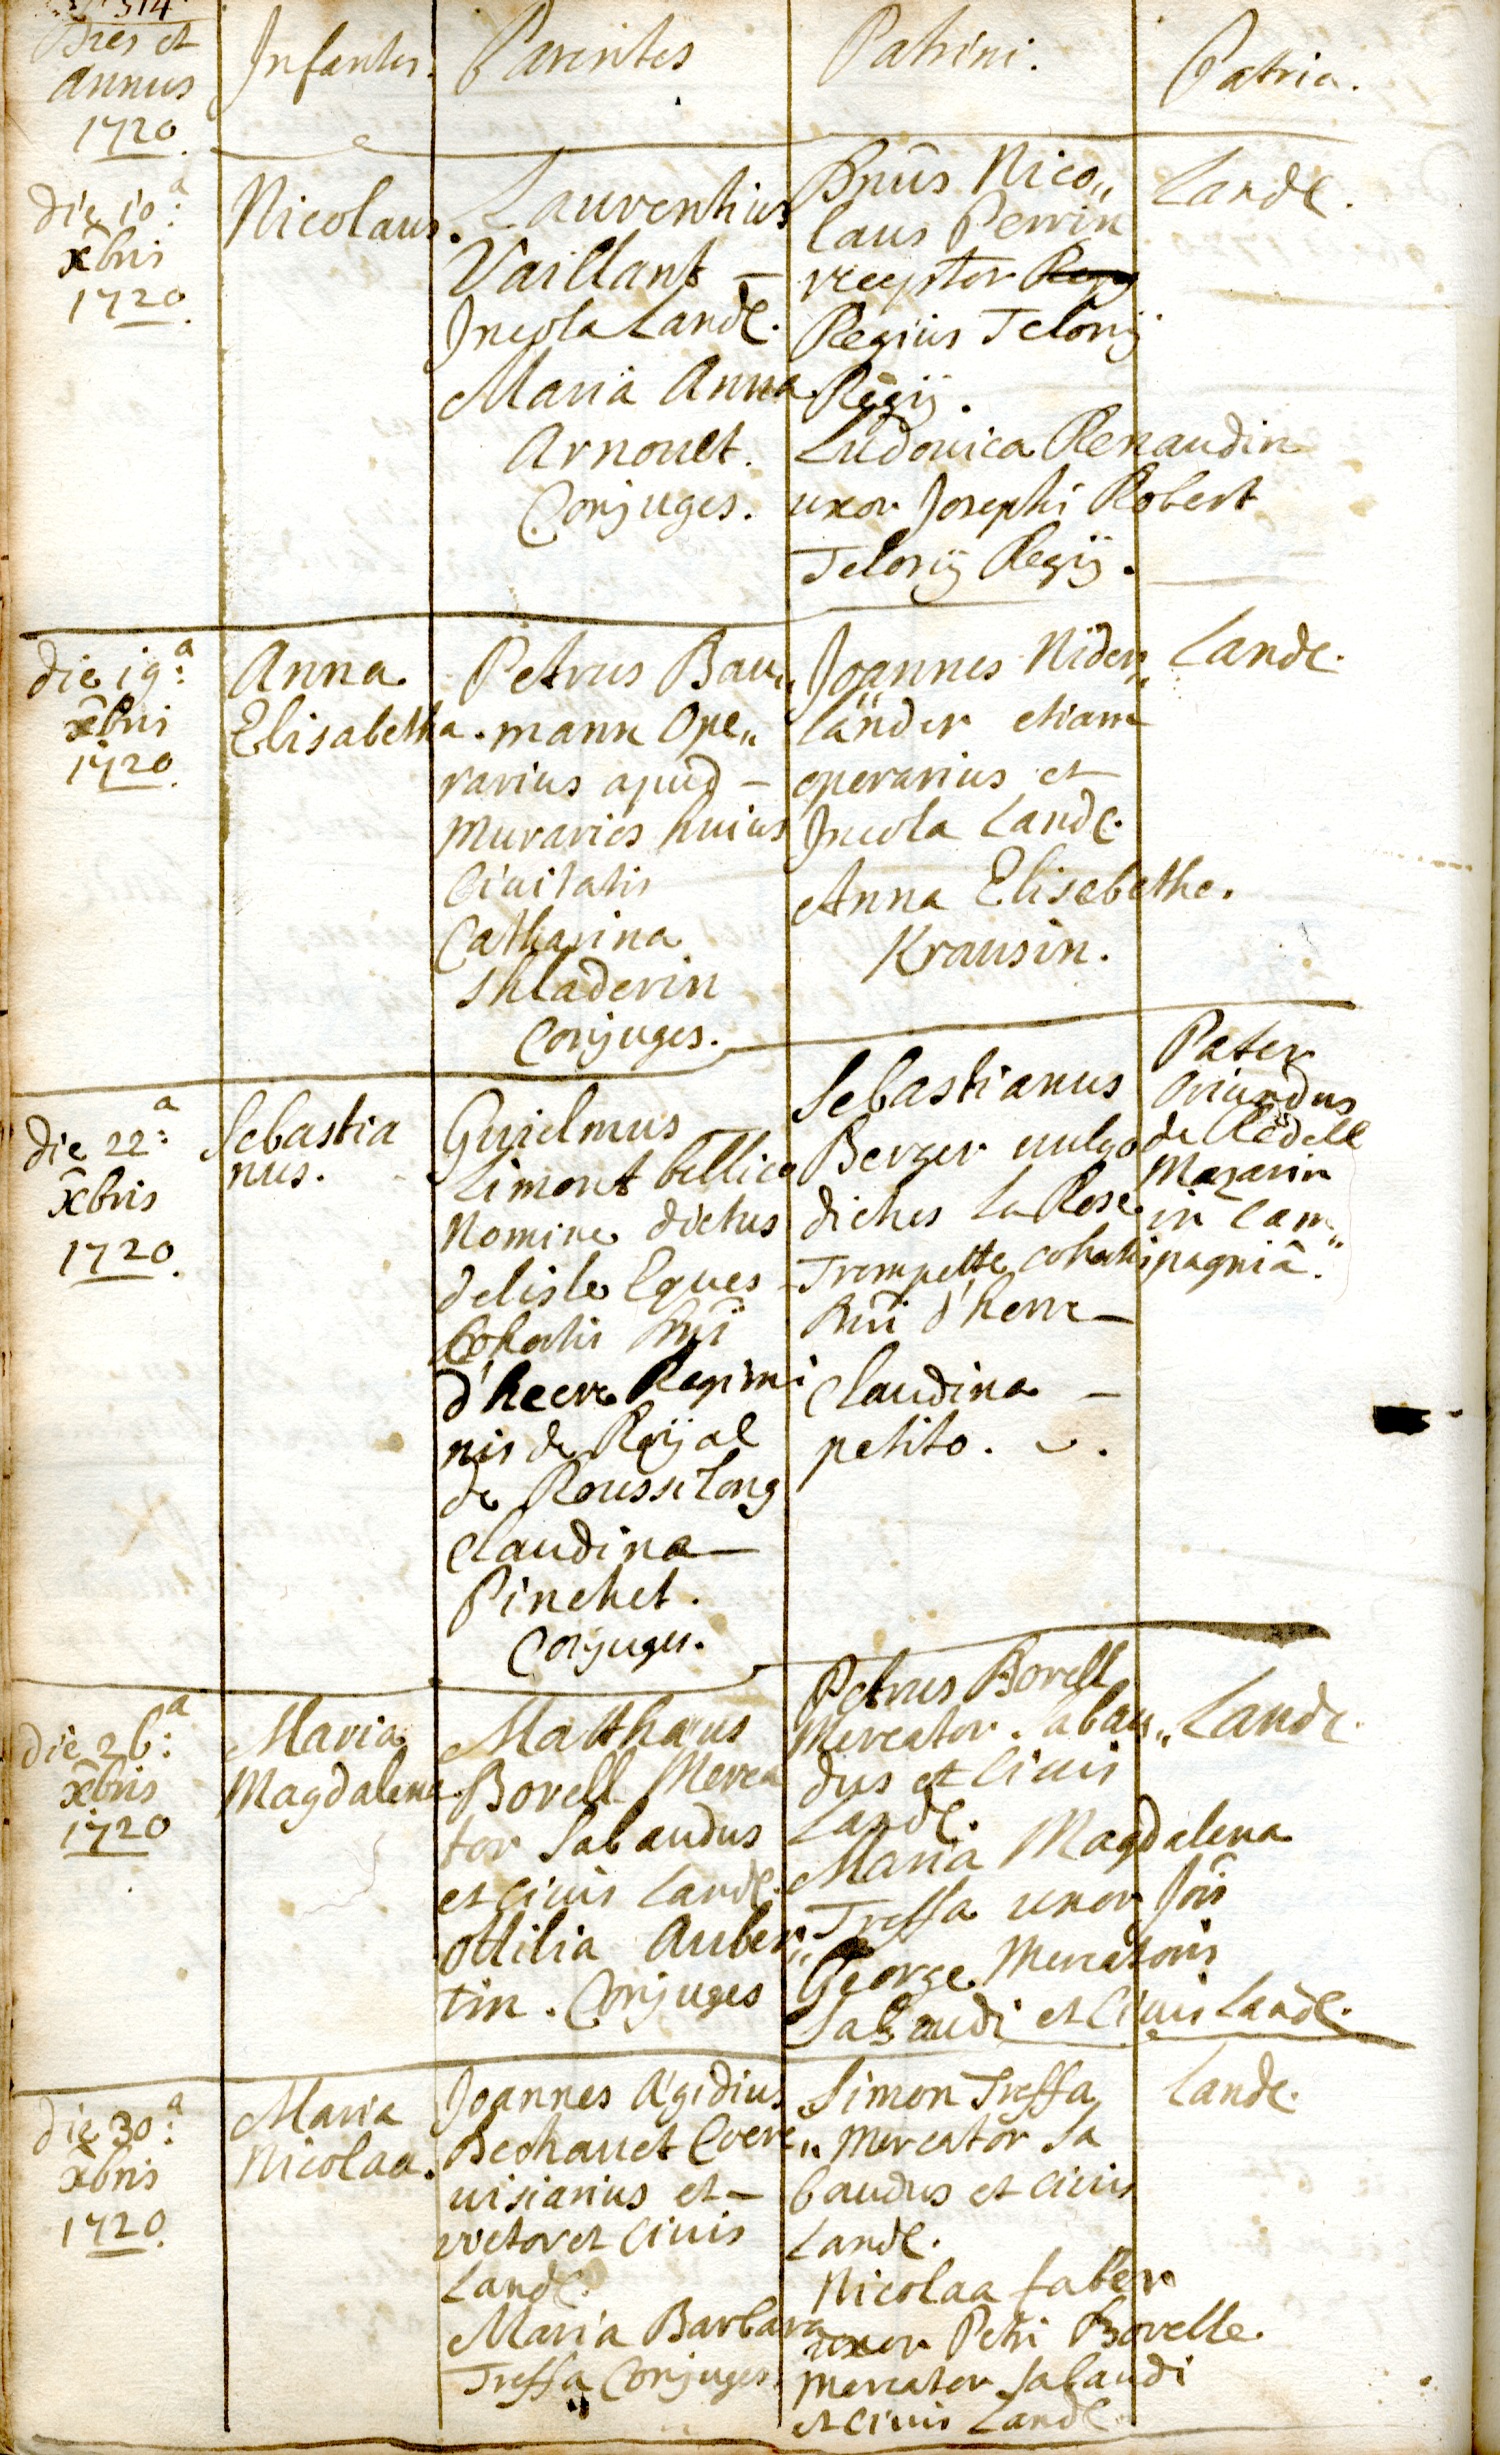 314
Dies et
Annus
1720
Infantes.
Parentes
Patrini.
Patria.
die 10:ª
xbris
1720.
Nicolaus.
Laurentius
Vaillant –
Incola Landℓ.
Maria Anna
Arnoult.
Conjuges.
Dnus Nico„
laus Perrin
receptor
Regius Telonij
Regij.
Ludovica Renaudin
uxor Josephi Robert
Telonij Regij.
Landℓ.
die 19:ª
xbris
1720.
Anna
Elisabetha.
Petrus Bau„
mann Ope„
rarius apud –
Murarios huius
Ciuitatis
Catharina
Shladerin
Conjuges.
Joannes Nider„
länder etiam
operarius et
Incola Landℓ.
Anna Elisabetha.
Krausin.
Landℓ.
die 22:ª
xbris
1720.
Sebastia
nus.
Guielmus –
Limont bellico
Nomine dictus
delisle Eques –
Cohortis Dni
d'heere Regimi
nis de Roÿal
de Roussilong
Claudina –
Pinchet.
Conjuges.
Sebastianus
Berger uulgo
dictus La Rose
Trompette cohortis
Dni d'herre –
Claudina –
petito.
Pater
Oriundus
de Redelle
Mazarin
in Cam„
pagniâ.
die 26:ª
xbris
1720
Maria
Magdalena.
Matthaus
Borell Merca
tor Sabaudus
et Ciuis Landℓ.
Ottilia Auber„
tin. Conjuges
Petrus Borell
Mercator Sabau„
dus et Ciuis
Landℓ.
Maria Magdalena
Treffa uxor Jois
George Mercatoris
Sabaudi et Ciuis Landℓ.
Landℓ.
die 30:ª
xbris
1720.
Maria
Nicolaa.
Joannes Ægidius
Bechauet Cere„
uisiarius et –
vietor et Ciuis
Landℓ.
Maria Barbara
Treffa Conjuges.
Simon Treffa
Mercator Sa
baudus et Ciuis
Landℓ.
Nicolaa faber
uxor Petri Borelle.
Mercator Sabaudi
et Ciuis Landℓ.
Landℓ.